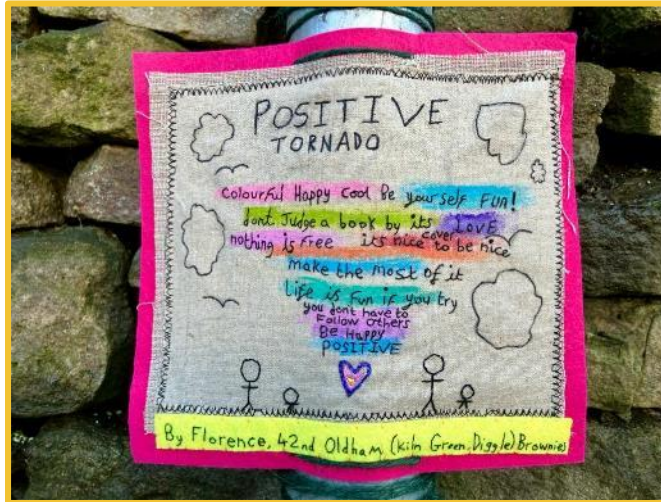 POSITIVE
TORNADO
colourful Happy cool Be yourself FUN!
dont Judge a book by its cover LOVE
nothing is free its nice to be nice
make the most of it
Life is fun if you try
you dont have to
Follow others
Be Happy
POSITIVE
By Florence, 42nd Oldham (Kiln Green, Diggle) Brownies